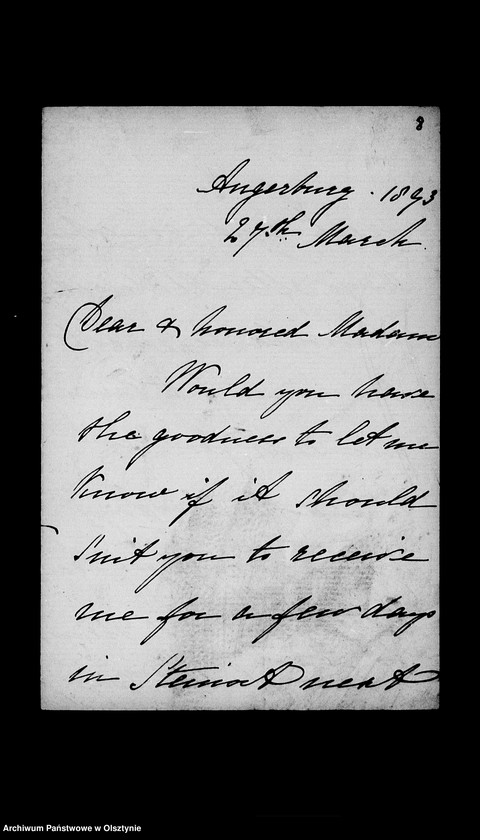 8
Angerburg . 1893
27th March.
Dear & honored Madame
Would you have
the goodness to let me
know if it should
suit you to receive
me for a few days
in Steinort next
Archiwum Państwowe w Olsztynie